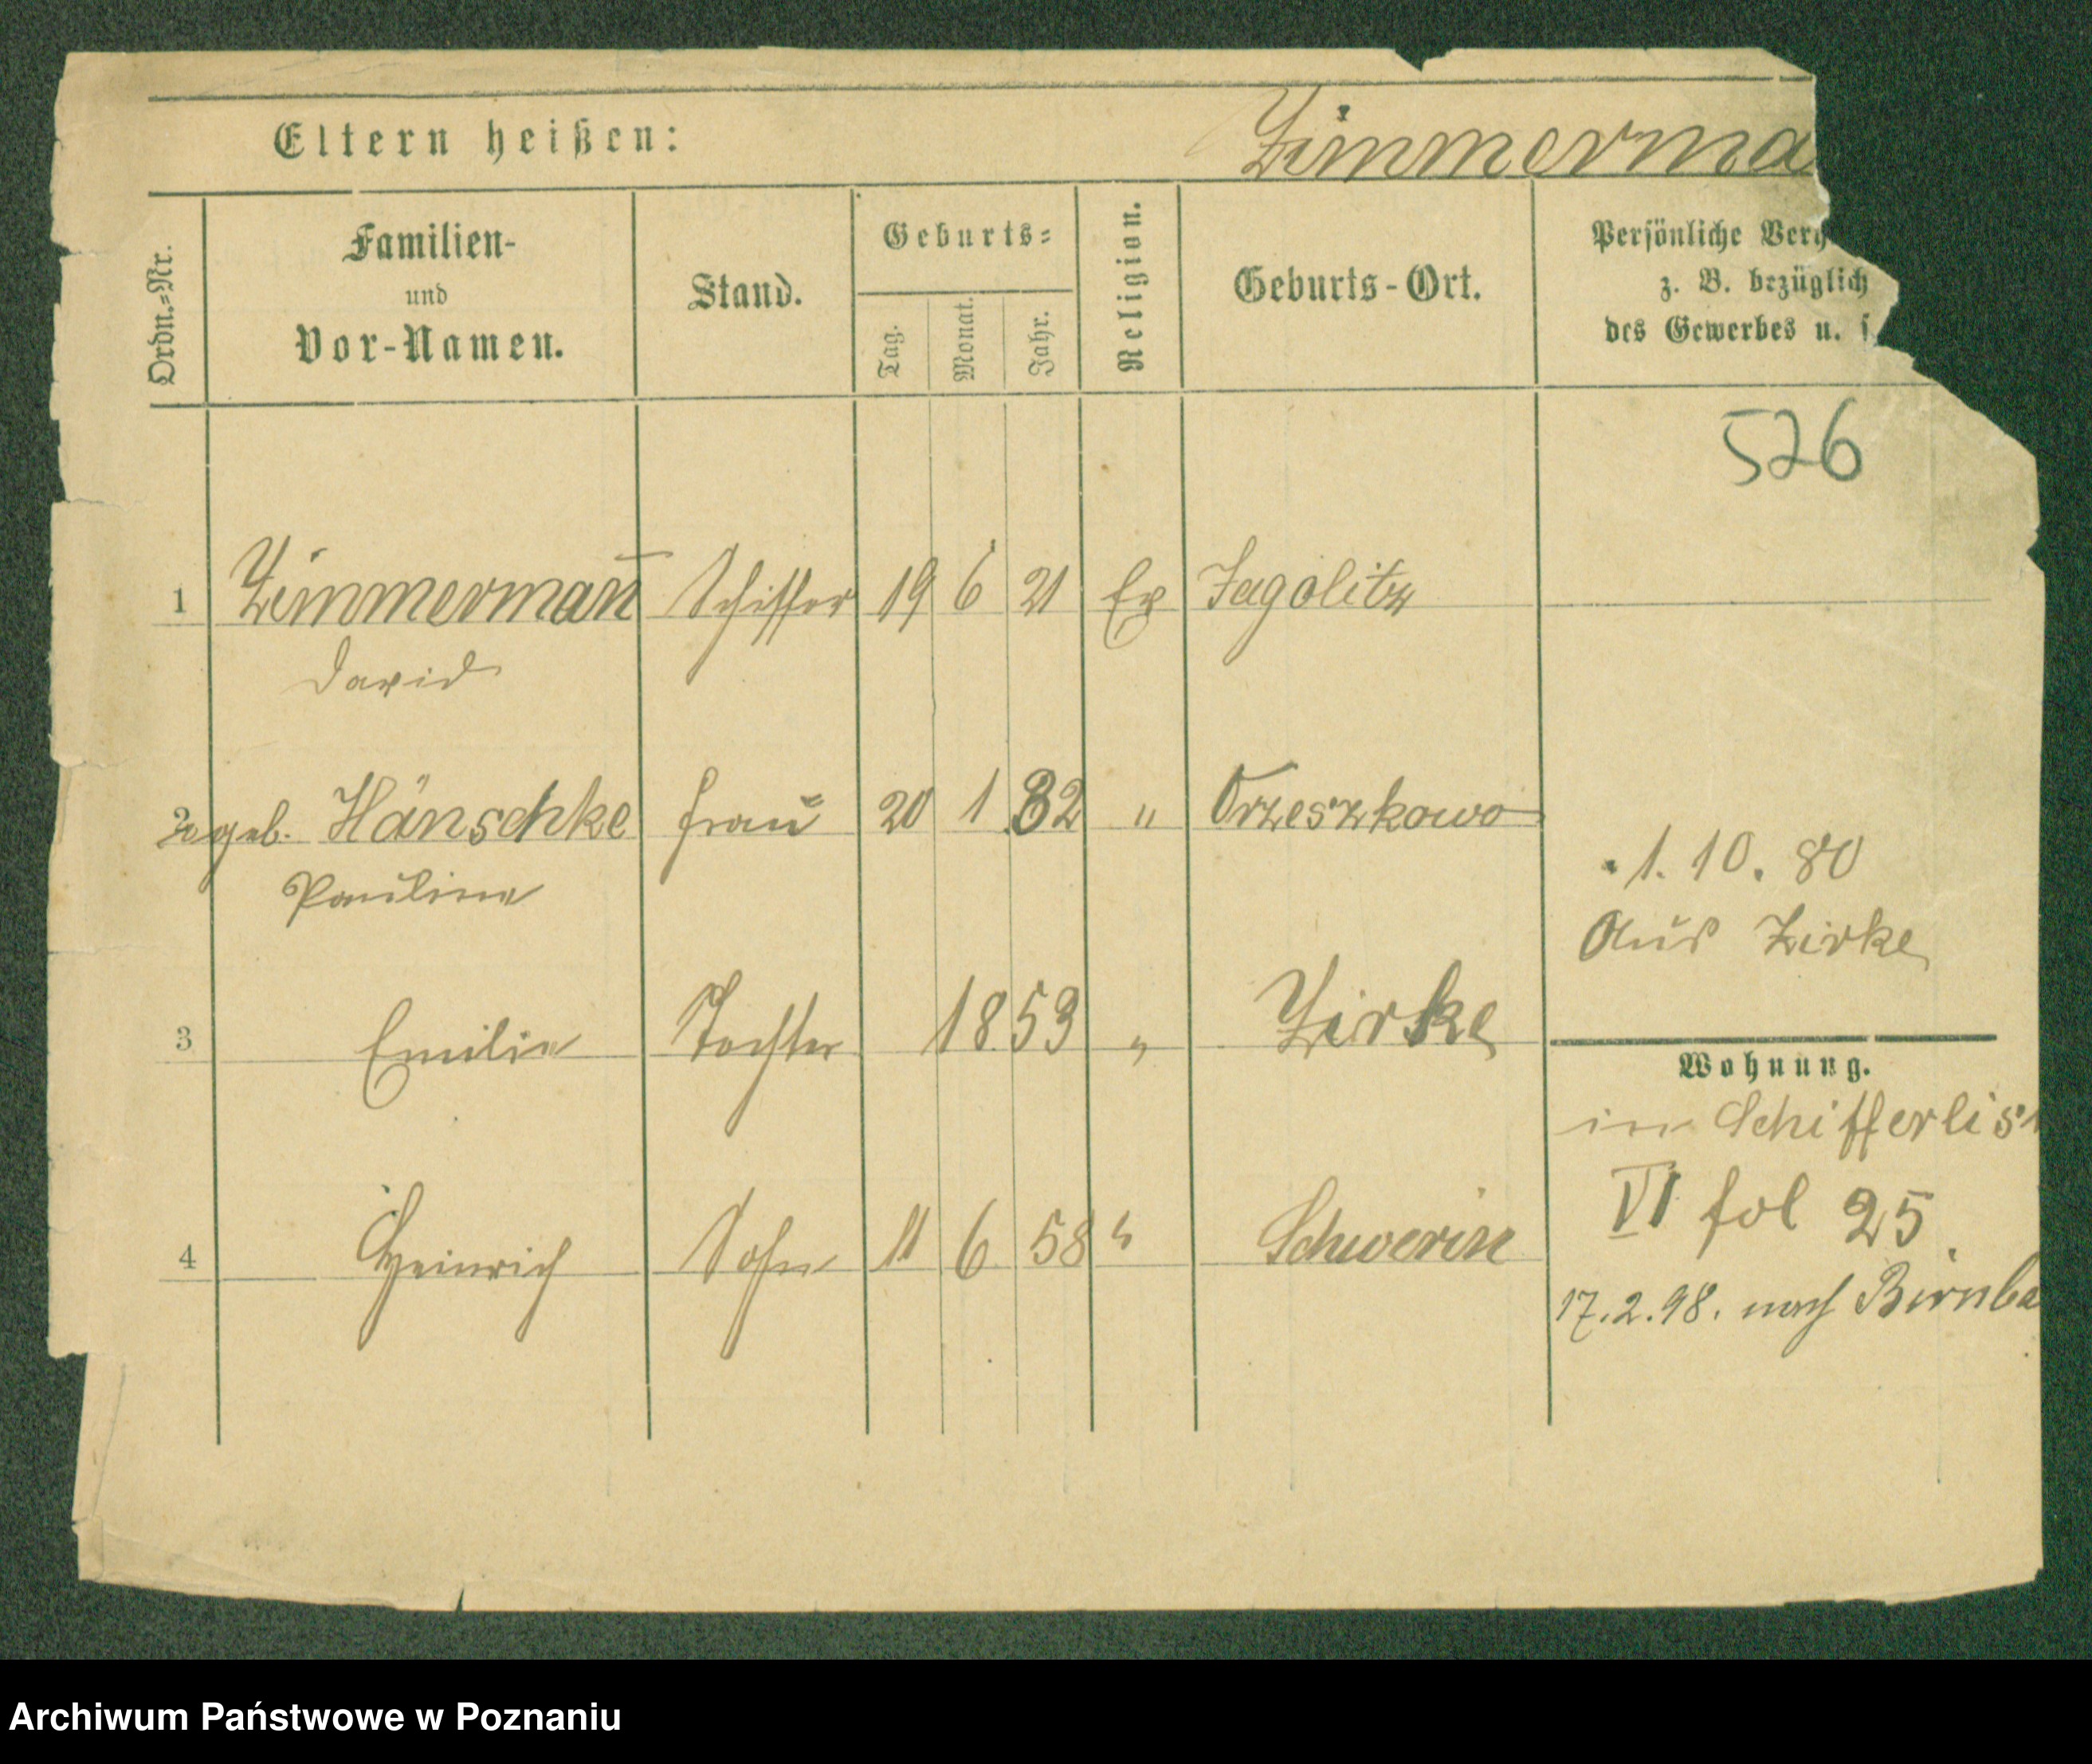 Eltern heißen: Zimmerma
Ordn.=Nr. Familien- und Vor-Namen. Stand. Geburts= Tag. Monat. Jahr. Religion. Geburts-Ort. Persönliche Verh
z. B. bezüglich
des Gewerbes u. s
526
1 Zimmermañ Schiffer 19 6 21 Ev Jagolitz
David
2 geb. Hänschke Frau 20 1 32 " Orzeszkowo
Pauline
1. 10. 80
Aus Zirke
3 Emilie Tochter 18.53 " Zirke
Wohnung.
in Schifferlis
VI fol 25
4 Heinrich Sohn 11 6 58 " Schwerin
17.2.98. nach Birnba
Archiwum Państwowe w Poznaniu